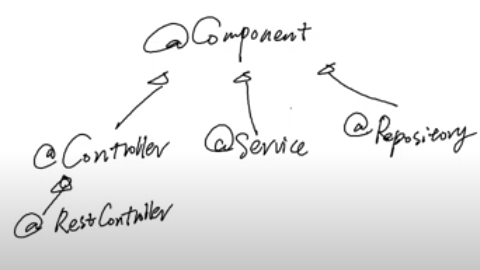 @Component
@Controller @Service @Repository
@RestController